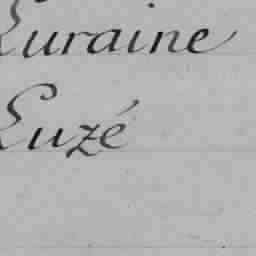 Luraine
Luzé